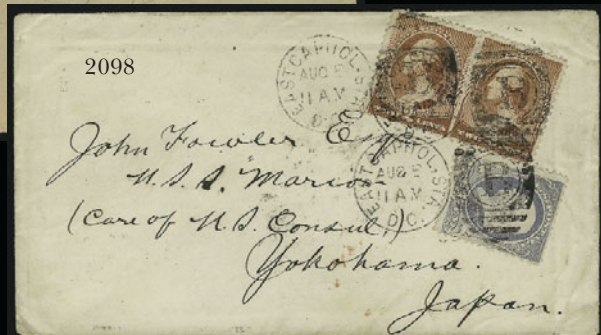 2098
EAST CAPITOL STA.
AUG 5
11 AM
D.C.
EAST CAPITOL STA.
AUG 5
11 AM
D.C.
John Fowler Esq
U.S.S. "Marion"
(Care of U.S. Consul,)
Yokohama.
Japan.